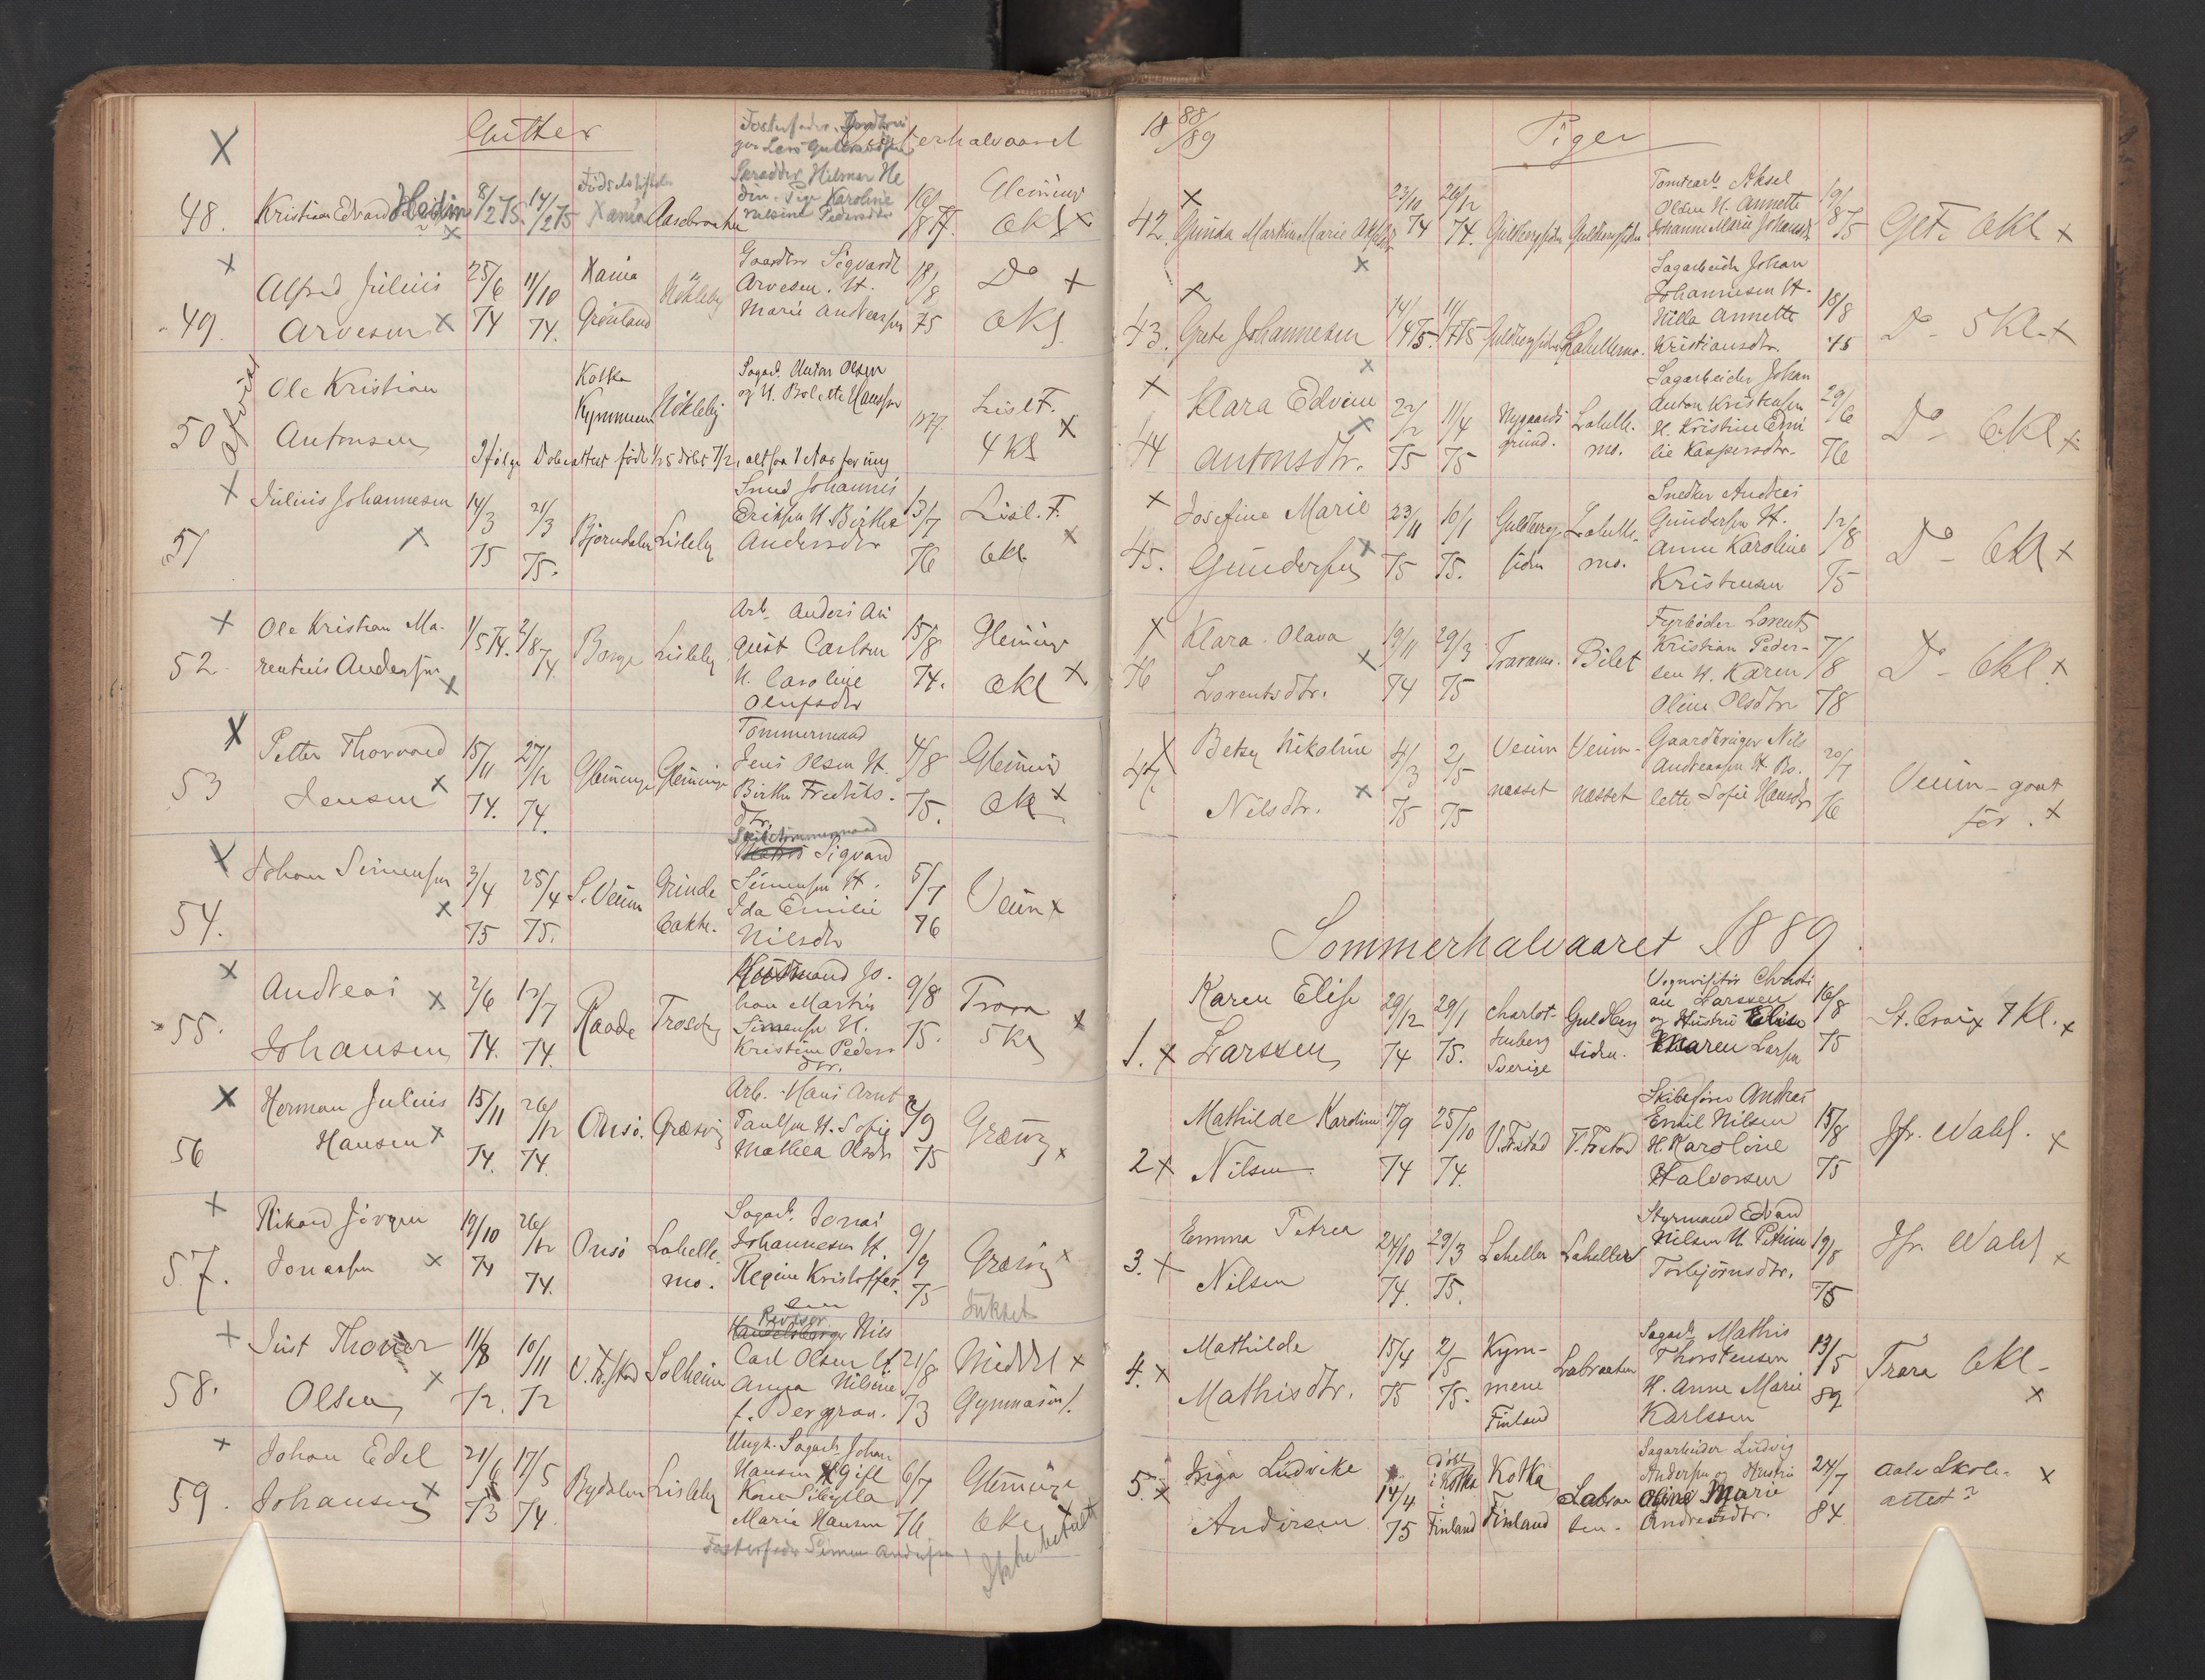 Gutter
Vinterhalvaaret
Fosterfader
48. Kristian Edvard Hedin 8/2 75. 14/2 75 Xania Skrædder Hilmar Hedin. Pige Karoline Nilsine Pedersdtr 16/8 77. Glemmen 6Kl X
49. Alfred Julius Arvesen 25/6 74 11/10 74. Xania Grønland Nökleby Gaardbr Sigvardt Arvesen. H. Marie Andreassen 18/8 75 Do 6Kl
50 Ole Kristian Antonsen Kotka Kymmene Nökleby Sagarb. Anton Olsen og H. Bolette Hanssen 1877. Lisl F. 4 Kl
Ifølge Dobsattest född 1/2 5 döbt 7/2, altsaa 1 Aar for ung
51 Julius Johannesen 14/3 75 21/3 75. Björndalen Lisleby Smed Johannes Eriksen H. Birthe Andersdtr 13/7 76 Lisl. F. 6Kl
52. Ole Kristian Marentius Andersen 1/5 74. 2/8 74 Borge Lisleby Arb. Anders August Carlsen H. Caroline Olufsdtr 15/8 74. Glemmen 6Kl
53 Petter Thorvald Jensen 15/11 74. 27/12 74. Glemminge Glemminge Tømmermand Jens Olsen H. Birthe Fredriksdtr. 4/8 75. Glemmen 6Kl
54. Johan Simensen 3/4 75 25/4 75. S. Veum Grindebakke. Skibstømmermand Sigvard Simensen H. Ida Emilie Nilsdtr 5/7 76 Veum
55. Andreas Johansen 2/6 74. 12/7 74. Raade Trosvig Husmand Johan Martin Simensen H. Kristine Pedersdtr. 9/8 75. Trara 5Kl
56 Herman Julius Hansen 15/11 74. 26/12 74. Onsö. Græsvig Arb. Hans Arnt Paulsen H. Sofie Mathea Olsdtr 2/9 75 Græsvig
57. Rikard Jörgen Jonassen 19/10 74 26/12 74. Onsö Lahellemo. Sagarb. Jonas Johannesen H. Regine Kristoffersen 9/9 75 Græsvig
58. Just Thoner Olsen 11/8 72. 10/11 72 V. Fr.stad Solheim Revisor Nils Carl Olsen H. Anna Nilsine f. Berggran. 21/8 73 Middel Gymnasiet.
59. Johan Edel Johansen 21/6 73 17/5 74. Bydalen Lisleby Ungk. Sagarb. Johan Hansen Gift Kone Sibylla Marie Hansen 6/7 76 Glemminge 6Kl Ikke betalt
Fosterfader Simen Andersen
18 88/89
Piger
42. Gunda Martine Marie Akselsdtr 23/10 74 26/12 74. Guldbergsiden Guldbergsiden Tomtearb. Aksel Olsen H. Annette Johanne Marie Johansdtr 19/8 75 Gl. F. 6Kl
43. Grete Johannesen 14/4 75. 11/7 75 Guldbergsiden Lahellemo. Sagarbeider Johan Johannesen H. Hilla Annette Kristiansdtr. 18/8 75 Do - 5 Kl.
44 Klara Edvine Antonsdtr. 22/2 75 11/4 75 Nygaardsgrund. Lahellemo. Sagarbeider Johan Anton Kristensen H. Kristine Emilie Kaspersdtr. 29/6 76 Do - 6Kl
45. Josefine Marie Gundersen 23/11 75 10/1 75. Guldbergsiden Lahellemo. Snedker Andreas Gundersen H. Anne Karoline Kristensen 12/8 75 Do - 6Kl
46 Klara Olava Lorentsdtr. 19/11 74 29/3 75 Traramo. Bilet Fyrböder Lorents Kristian Pedersen H. Karen Oline Olsdtr 7/8 78 Do - 6Kl
47 Betzy Nikoline Nilsdtr. 4/3 75 2/5 75 Veumnæsset Veumnæsset Gaardbruger Nils Andreassen H. Bolette Sofie Hansdtr 20/7 76 Veum - gaat før.
Sommerhalvaaret 1889.
1. Karen Elise Larssen 29/12 74 29/1 75. Charlottenberg Sverige Guldbergsiden. Vognvisitør Christian Larssen og Hustru Elise Maren Larsen 16/8 75 St. Croix 7 Kl.
2 Mathilde Karoline Nilsen 17/9 74 25/10 74. V. Fr.stad V. Fr.stad Skibsfører Andreas Emil Nilsen H. Karoline Halvorsen 15/8 75 Jfr. Wahl.
3. Emma Petrea Nilsen 24/10 74. 29/3 75. Lahellen Lahellen Styrmand Edvard Nilsen H. Petrine Torbjörnsdtr. 19/8 75 Jfr. Wahl
4. Mathilde Mathisdtr. 15/4 75 2/5 75. Kymmene Finland Labraaten Sagarb. Mathis Thorstensen H. Anne Marie Karlssen 13/5 89 Trara 6Kl -
5. Inga Ludvike Andersen 14/4 75 döbt i Kotka i Finland Kotka Finland Labraaten. Sagarbeider Ludvig Andersen og Hustru Oline Marie Andreasdtr. 24/7 84 Aalv Skoleattest?